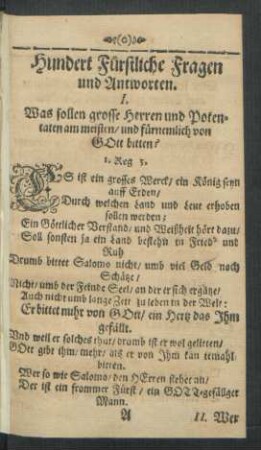 (o)
Hundert Fürstliche Fragen
und Antworten.
I.
Was sollen grosse Herren und Poten-
taten am meisten/ und fürnemlich von
GOtt bitten?
1. Reg 3.
ES ist ein grosses Werck/ ein König seyn
auff Erden/
Durch welchen Land und Leut erhoben
sollen werden;
Ein Göttlicher Verstand/ und Weißheit hört dazu/
Soll sonsten ja ein Land bestehn in Fried und
Ruh
Drumb bittet Salomo nicht/ umb viel Geld noch
Schätz/
Nicht/ umb der Feinde Seel/ an der er sich ergätze/
Auch nicht umb lange Zeit zu leben in der Welt/:
Er bittet mehr von GOtt/ ein Hertz das Ihm
gefällt.
Und weil er solches thut/ drumb ist er wol gelitten/
GOtt gibt ihm/ mehr/ als er von Ihm kan
bitten.
Wer so wie Salomo/ den HErren stehet an/
Der ist ein frommer Fürst/ ein GOTT-gefällger
Mann.
A II. Wer